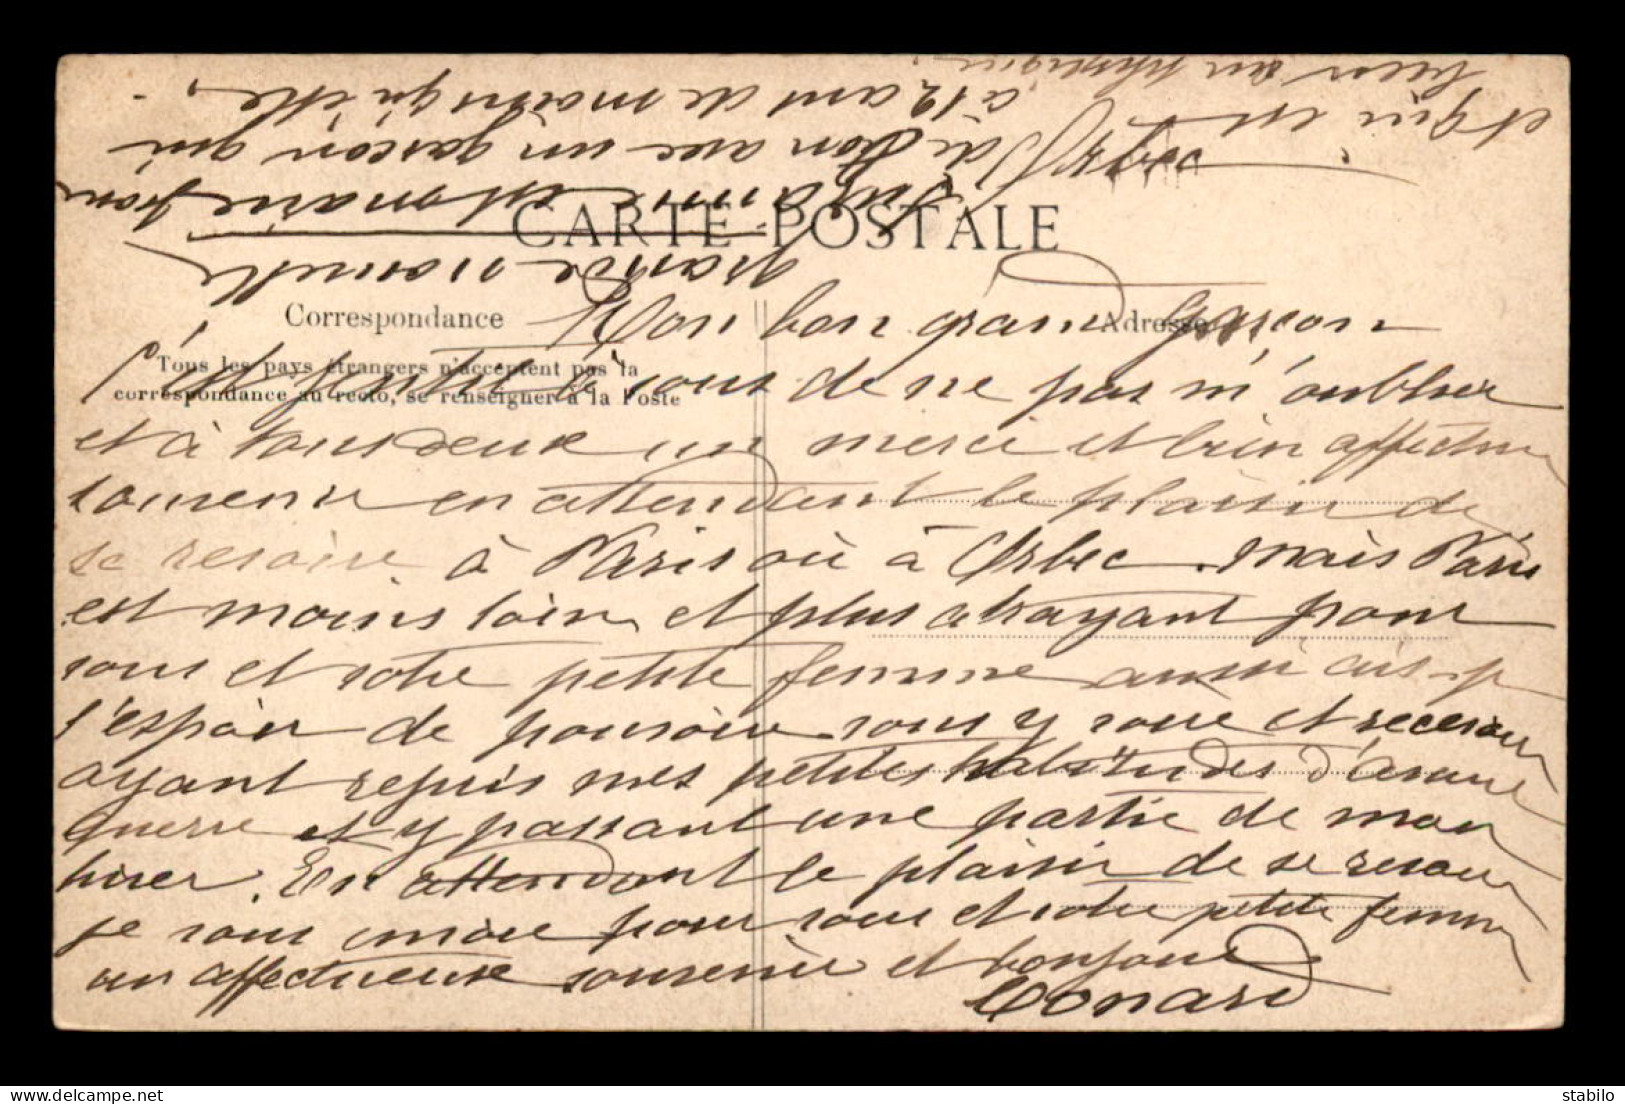 CARTE POSTALE
Correspondance
Adresse
Tous les pays étrangers n'acceptent pas la
correspondance au recto, se renseigner à la Poste
Mon bon grand garçon
C'est gentil à vous de ne pas m'oublier
et à tous deux un merci et bien affectueux
souvenir en attendant le plaisir de
se revoir à Paris ou à Orbec. Mais Paris
est moins loin et plus attrayant pour
vous et votre petite femme aussi ai-je
l'espoir de pouvoir vous y voir et recevoir
ayant repris mes petites habitudes d'avant
guerre et y passant une partie de mon
hiver. En attendant le plaisir de se revoir
je vous envoie pour vous et votre petite femme
un affectueux souvenir et bonjour
Léonard
grande nouvelle
est mariée
avec un gascon qui
a 12 ans de moins qu'elle,
et qui est
bien au physique.
www.delcampe.net
stabilo